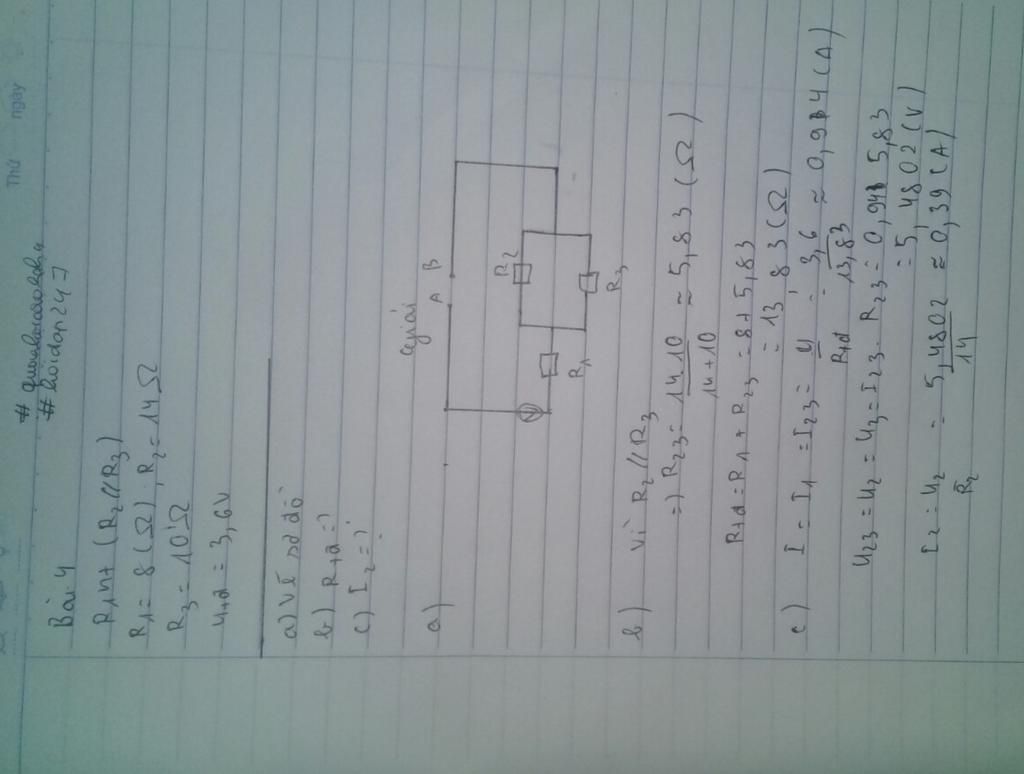 Thứ ngày
Bài 4
R1 nt (R2//R3)
R1 = 8(Ω), R2 = 14Ω
R3 = 10Ω
Utđ = 3,6V
a) Vẽ sơ đồ
b) Rtđ = ?
c) I2 = ?
giải
a)
A B
V
R1
R2
R3
b) Vì R2//R3
=) R23 = 14.10/14+10 ≈ 5,83 (Ω)
Rtđ = R1 + R23 = 8 + 5,83
= 13,83 (Ω)
c) I = I1 = I23 = U/Rtđ = 3,6/13,83 ≈ 0,94 (A)
U23 = U2 = U3 = I23. R23 = 0,94. 5,83
= 5,4802 (V)
I2 = U2/R2 = 5,4802/14 ≈ 0,39 (A)